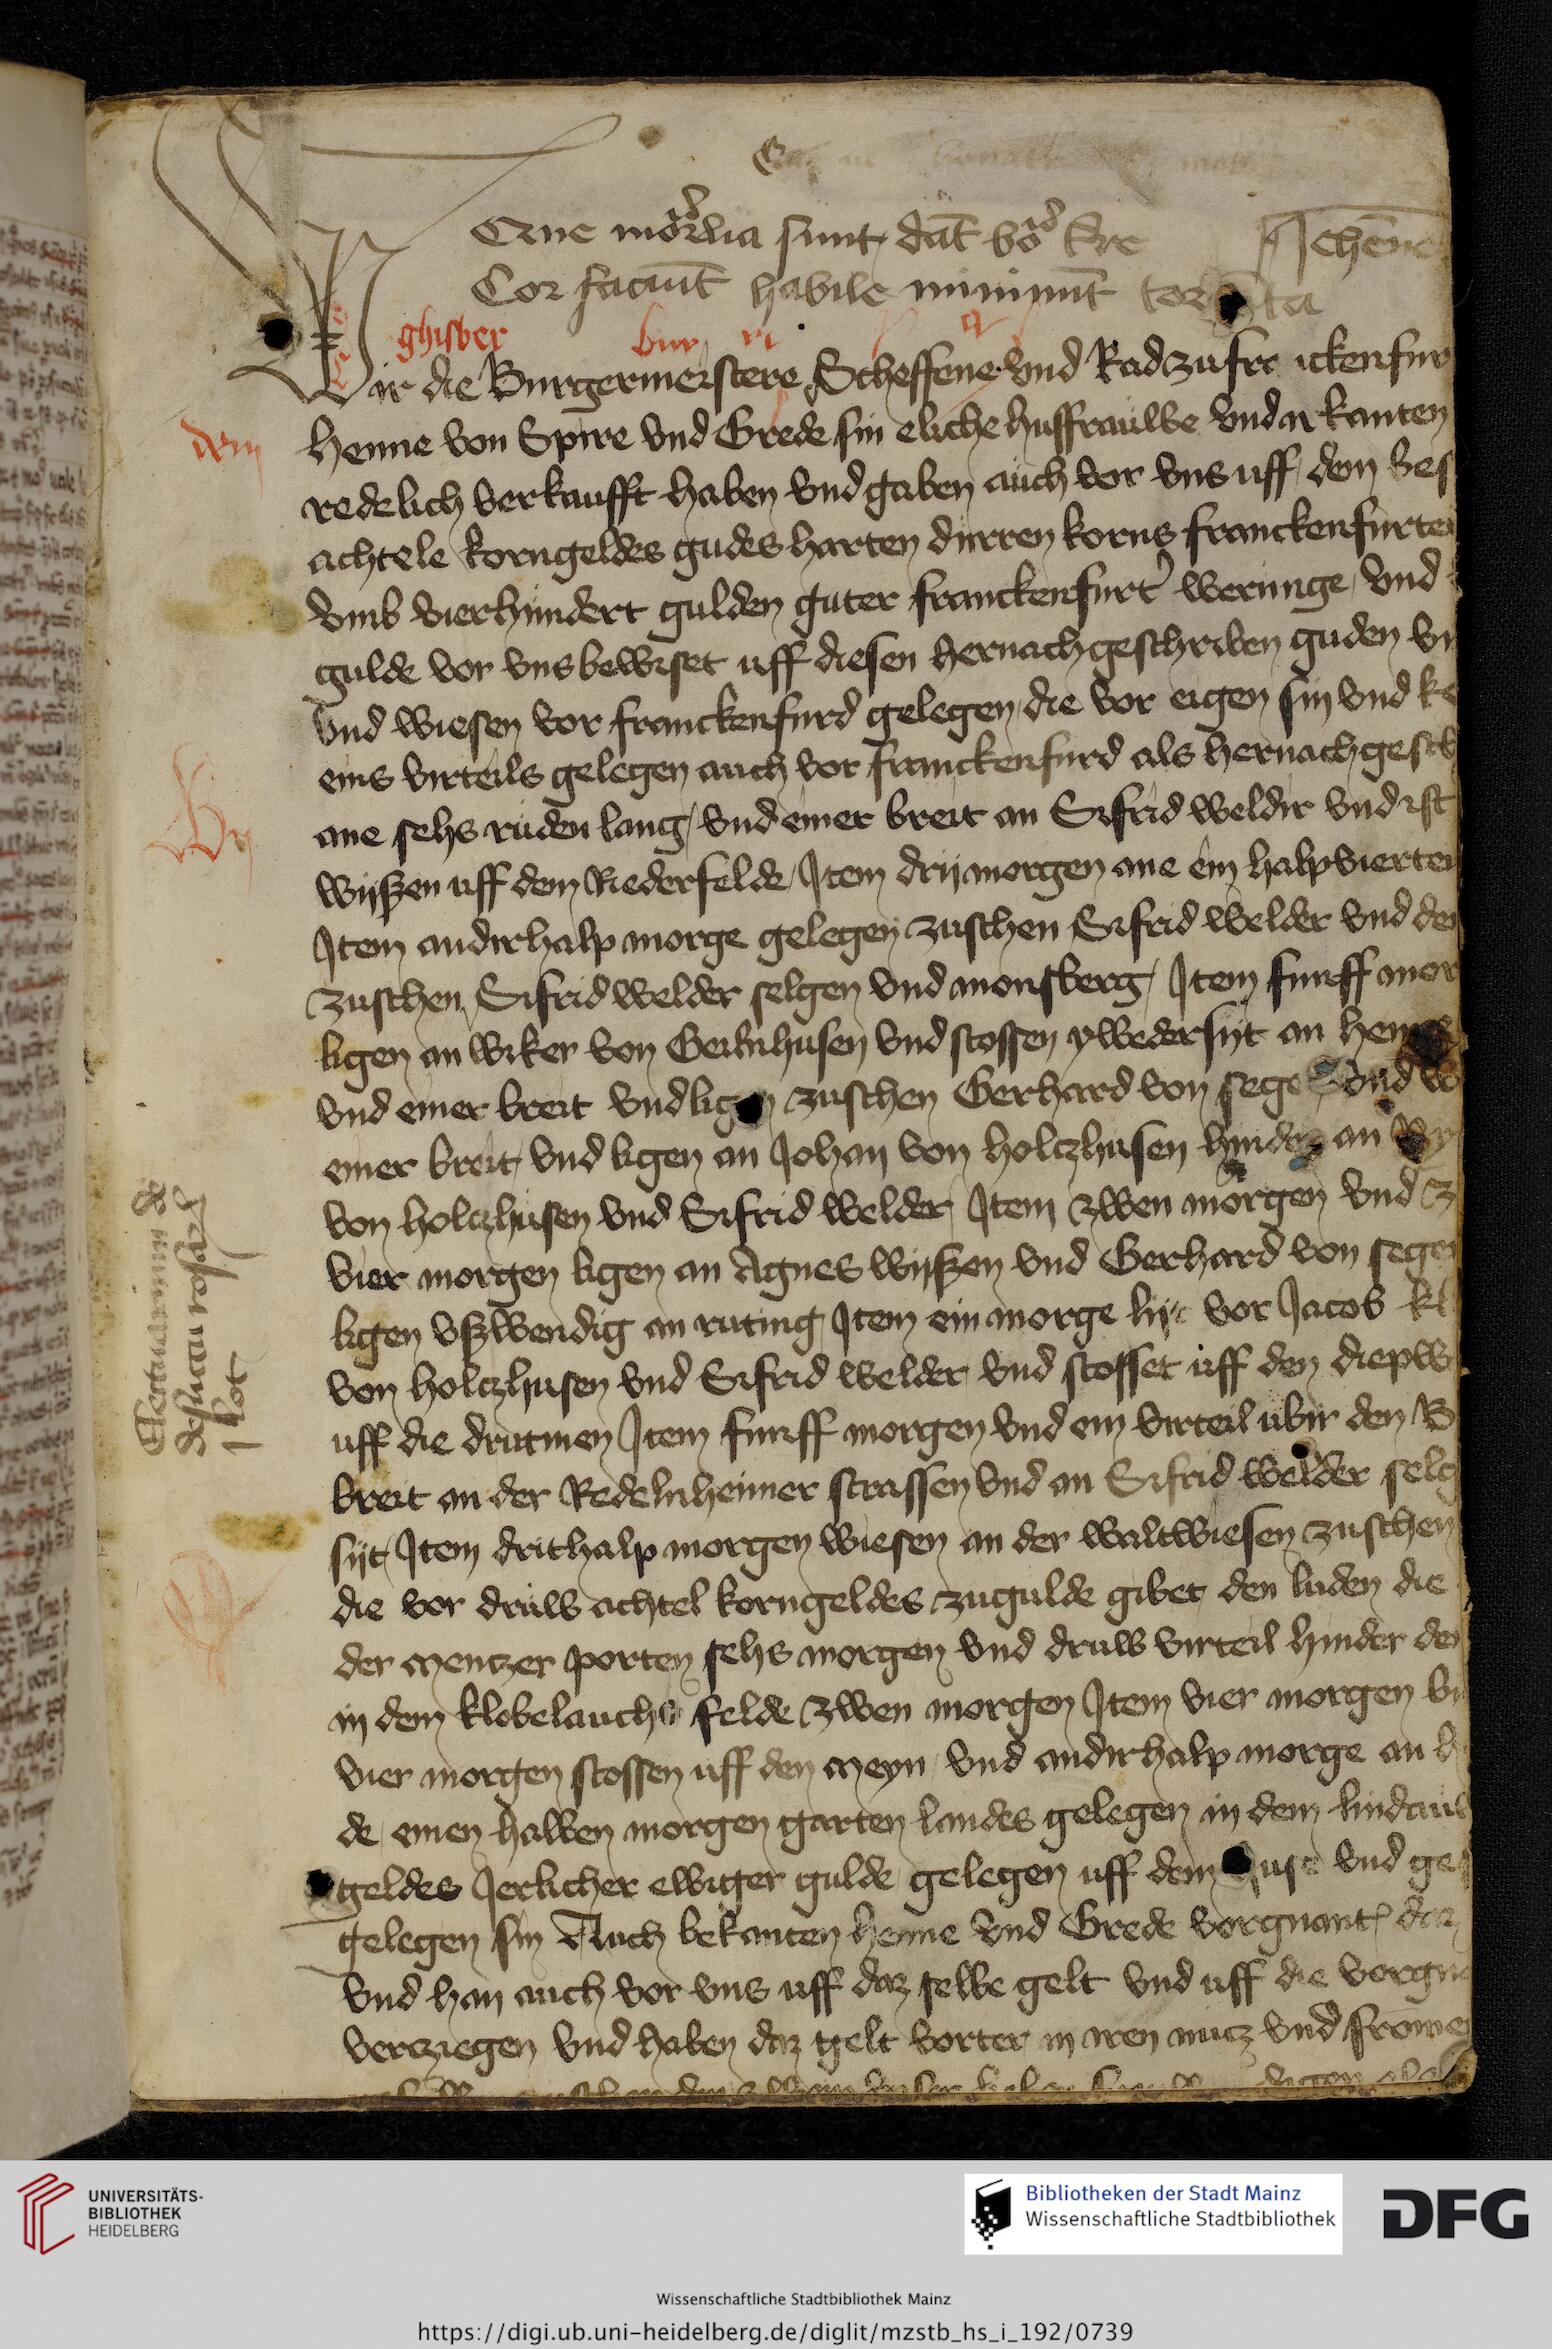 Cor faciunt habile minimunt
ghisber bur
Wir die Burgermeistere Scheffene vnd Rad zu fra ickenfur
Henne von Spire vnd Grede sin eliche husfrauwe vnd irkanten
redelich verkaufft haben vnd gaben auch vor vns uff dem bes
achtele korngeldes gudes harten durren korns franckenfurter
vmb vierhundert gulden guter franckenfurt werunge vnd
gulde vor vns bewiset uff diesen hernachgeschriben guden vn
vnd wiesen vor franckenfurd gelegen die vor eigen sin vnd ke
eins virteils gelegen auch vor franckenfurd als hernachgesch
ane sehs ruden lang vnd einer breit an Sifrid weldir vnd ist
wijszen uff dem Riederfelde Item drij morgen ane ein halp vierten
Item andirhalp morge gelegen zuschen Sifrid welder vnd den
zuschen Sifrid welder selgen vnd monsberg Item funff mor
ligen an wiker von Geilnhusen vnd stossen ywedersijt an hen
vnd einer breit vnd ligen zuschen Gerhard von sege vnd vo
einer breit vnd ligen an Johan von holczhusen hinden an
von holczhusen vnd Sifrid welder Item zwen morgen vnd z
vier morgen ligen an Agnes wijszen vnd Gerhard von segen
ligen vszwendig an ruting Item ein morge lijt vor Jacob kl
von holczhusen vnd Sifrid welder vnd stosset uff den diepw
uff die drutmen Item funff morgen vnd ein virteil ubir den B
breit an der Redelnheimer strassen vnd an Sifrid welder selg
sijt Item drithalp morgen wiesen an der waltwiesen zuschen
die vor druw achtel korngeldes zu gulde gibet den luden die
der mentzer porten sehs morgen vnd druw virteil hinder den
in dem klobelauchs felde zwen morgen Item vier morgen vn
vier morgen stossen uff den meyn vnd andirhalp morge an h
de einen halben morgen garten landes gelegen in dem lindau
geldes Jerlicher ewiger gulde gelegen uff dem huse vnd ges
gelegen sin Auch bekanten henne vnd Grede vorgnant daz
vnd han auch vor vns uff daz selbe gelt vnd uff die vorgn
verziegen vnd haben daz gelt vorter in iren nutz vnd fromen
UNIVERSITÄTS-
BIBLIOTHEK
HEIDELBERG
Bibliotheken der Stadt Mainz
Wissenschaftliche Stadtbibliothek
DFG
Wissenschaftliche Stadtbibliothek Mainz
https://digi.ub.uni-heidelberg.de/diglit/mzstb_hs_i_192/0739